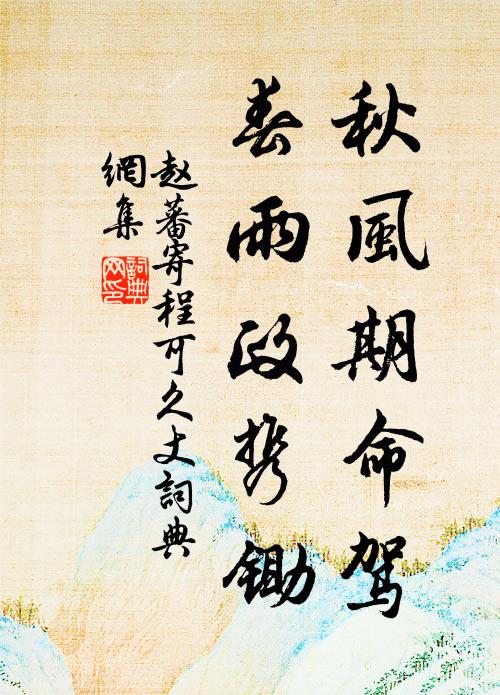 秋風期命駕
春雨政携鋤
赵蕃寄程可久丈詞典
網集
詞典
网印